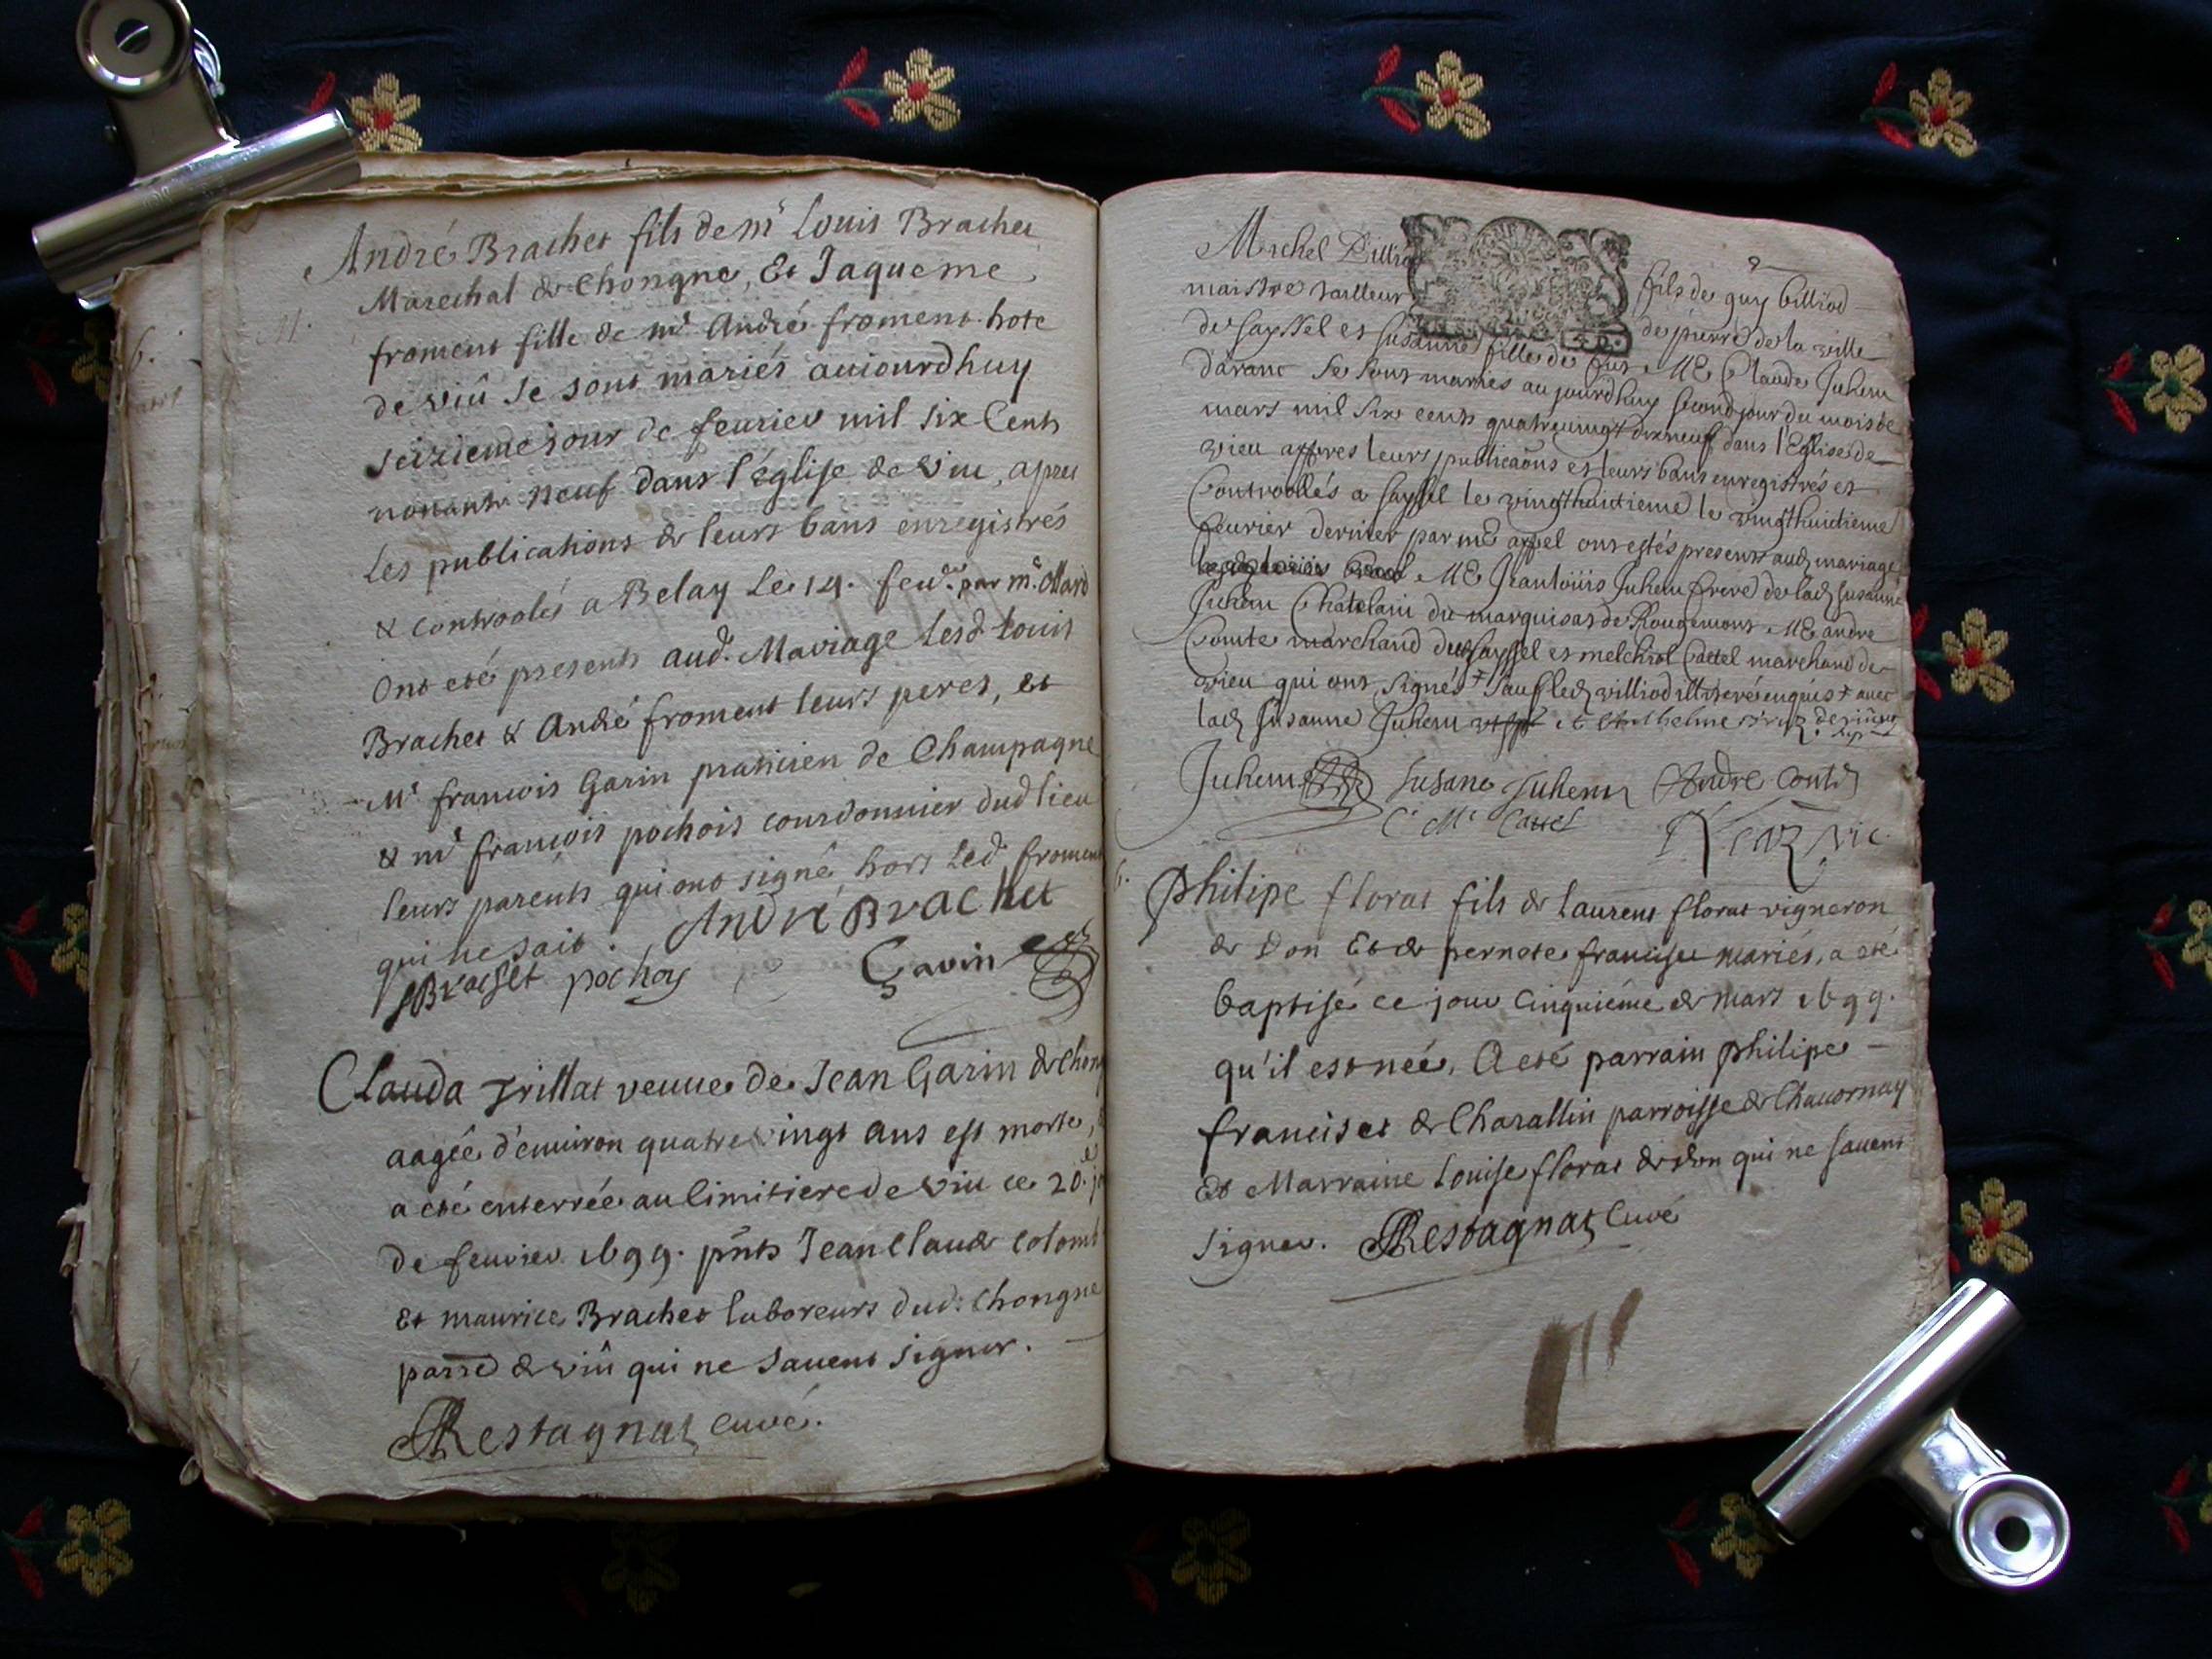 M.
André Brachet fils de mr Louis Brachet
Marechal de Chongne, Et Jaqueme
froment fille de mr André froment hote
de viû se sont mariés auiourdhuy
seizieme iour de feurier mil six Cents
nonante neuf dans l'église de viu, apres
les publications de leurs bans enregistrés
& controolés a Belay le 14. feur. par mr
Ont eté presents aud. Mariage lesd Louis
Brachet & André froment leurs peres, et
Mr francois Garin praticien de Champagne
& mr francois pochois courdonnier dud lieu
leurs parents qui ont signé hors led froment
qui ne sait.
André Brachet
Brachet pochoy Garin
Clauda Trillat veuue de Jean Garin de Chong
aagée d'enuiron quatre vingt ans est morte,
a eté enterrée au Cimitiere de viu ce 20.e
de feurier 1699. pnts Jean Claude Colomb
Et maurice Brachet laboreurs dud: Chongne
parre de viû qui ne sauent signer.
Restagnat Curé.
Michel
fils de guy billiod
maistre tailleur
de pierre de la ville
de Sayssel et Susanne fille de Me Claude Juhem
daranc se sont mariés au jourdhuy second jour du mois de
mars mil six cents quatreuingt dixneuf dans l'Eglise de
vieu appres leurs publicaõns et leurs bans enregistrés et
Controollés a Sayssel le vingthuictieme le vingthuictieme
feurier dernier par me appel ont estés presents aud mariage
Me Jeanloüis Juhem frere de lad Susanne
Juhem Chatelain du marquisat de Rougemont Me andre
Comte marchand de Sayssel et melchiol Cattel marchand de
vieu qui ont signés + sauf led enquis + auec
lad Susanne Juhem
Juhem Susane Juhem Andre Conte
Cattel
vic.
6.
Philipe florat fils de Laurent florat vigneron
de Don Et de pernete mariés, a eté
baptisé ce jour Cinquième de mars 1699.
qu'il est neé. A eté parrain philipe
franciset de Charallin parroisse de Chauornay
Et Marraine Louise florat de don qui ne sauent
signer. Restagnat Curé